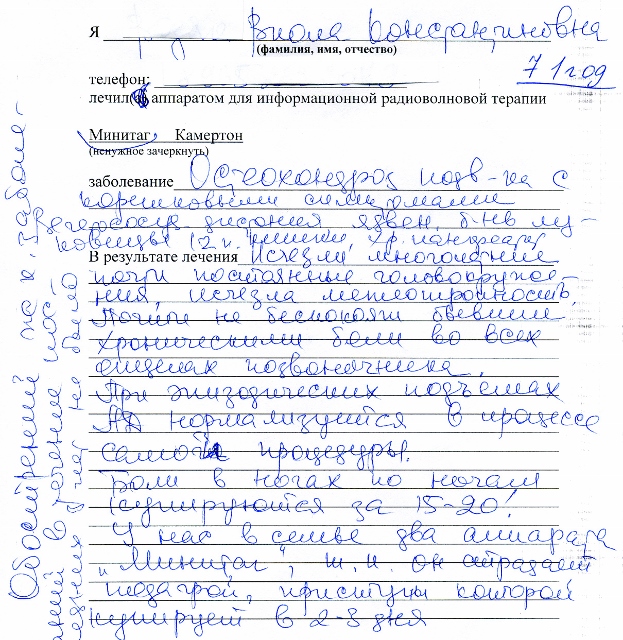 Я Виола Константиновна
(фамилия, имя, отчество)
71 год
телефон:
лечил(а) аппаратом для информационной радиоволновой терапии
Минитаг, Камертон
(ненужное зачеркнуть)
заболевание Остеохондроз подв-ка с
корешковыми синдромами
дистония язвен. б-нь лу-
ковицы 12 п. кишки, хр. панкреатит
В результате лечения Исчезли многолетние
почти постоянные головокруже-
ния, исчезла метеотропность.
Почти не беспокоят бывшие
хроническими боли во всех
отделах позвоночника.
При эпизодических подъемах
АД нормализуется в процессе
самой процедуры.
Боли в ногах по ночам
купируются за 15-20!
У нас в семье два аппарата
"Минитаг", т.к. он страдает
подагрой, приступы которой
купирует в 2-3 дня
Обострений по к. заболе-
ваний в течение пос-
ледних лет не было